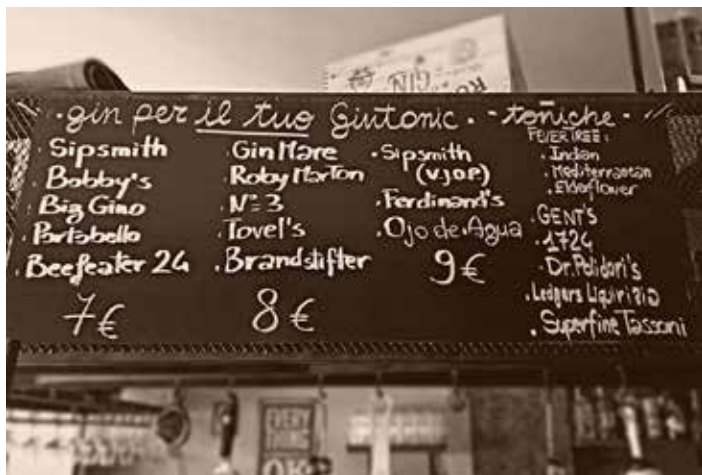 GIN
· gin per il tuo Gintonic. - toniche -
· Sipsmith
· Bobby's
Big Gino
· Portobello
· Beefeater 24
7€
· Gin Mare
· Roby Marton
· N° 3
· Tovel's
· Brandstifter
8€
· Sipsmith
(VJOP)
· Ferdinand's
· Ojo de Agua
9€
FEVERTREE:
· Indian
· Mediterranean
· Elderflower
· GENT'S
· 1724
· Dr. Polidori's
· Ledgers Liquirizia
· Superfine Tassoni
EVERY
THING
OK